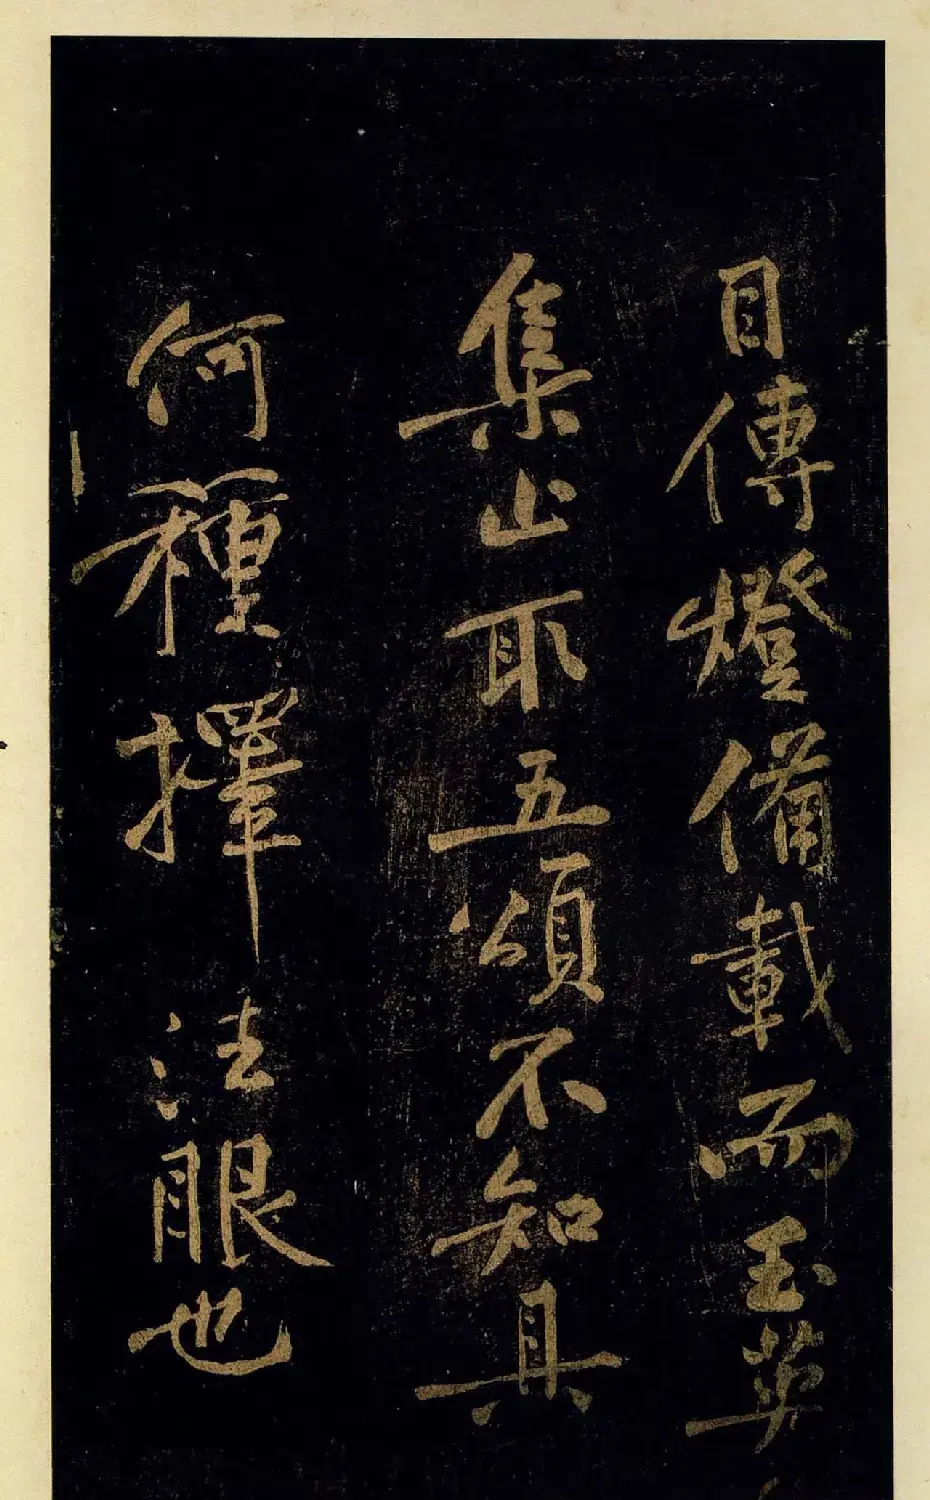 目傳燈備載而玉英
集止取五頌不知具
何種擇法眼也